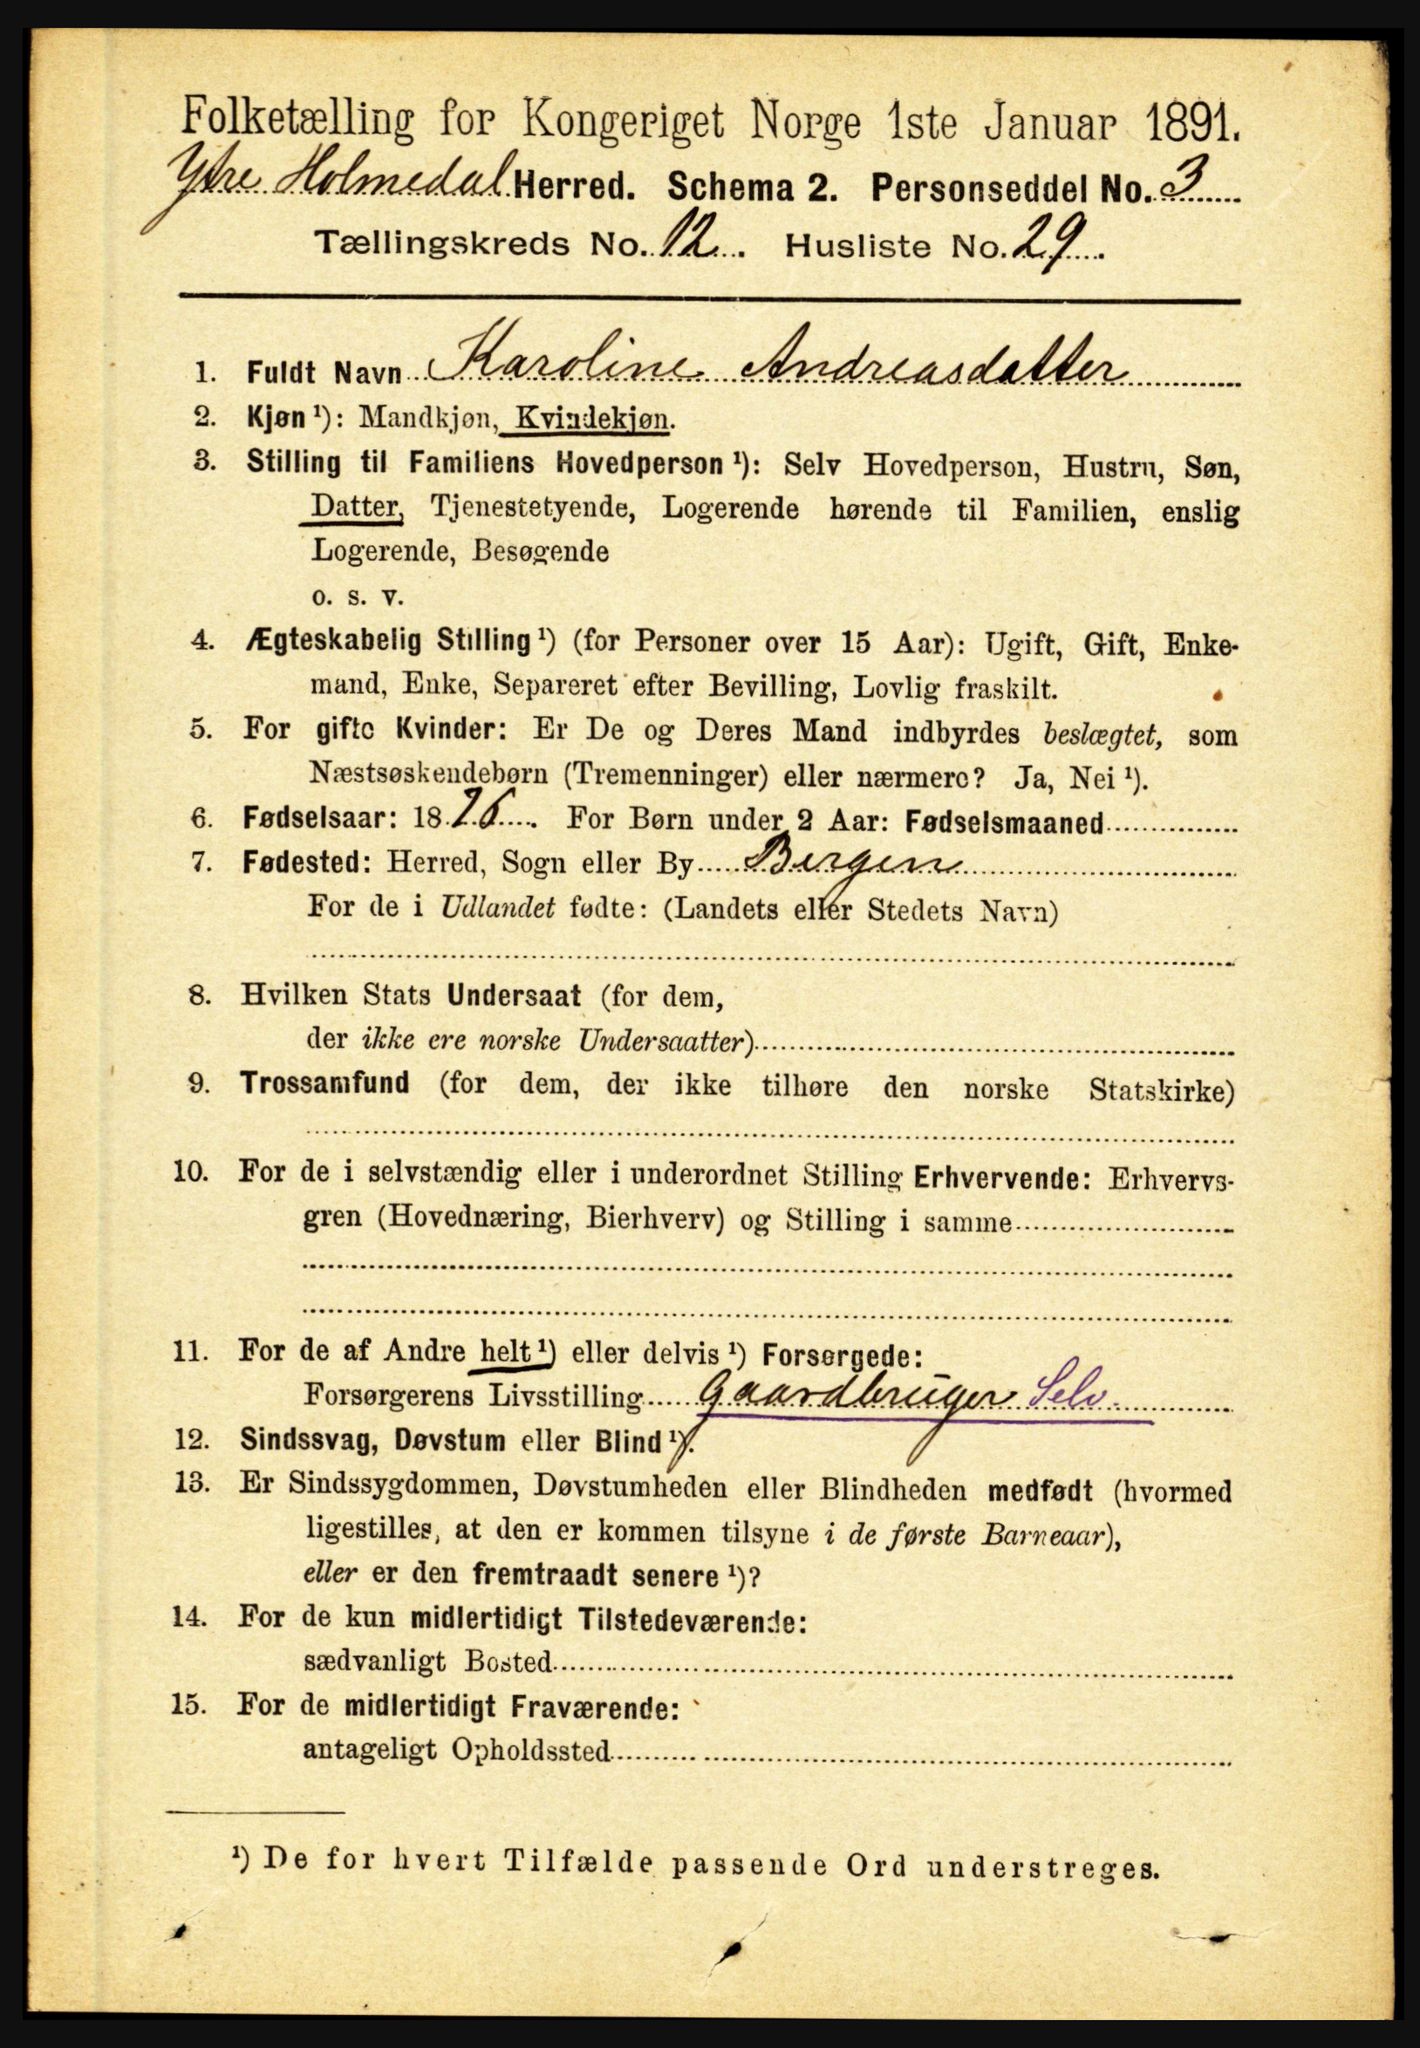 Folketælling for Kongeriget Norge 1ste Januar 1891.
Ytre Holmedal Herred. Schema 2. Personseddel No. 3
Tællingskreds No. 12. Husliste No. 29.
1. Fuldt Navn Karoline Andreasdatter
2. Kjøn ¹): Mandkjøn, Kvindekjøn.
3. Stilling til Familiens Hovedperson ¹): Selv Hovedperson, Hustru, Søn,
Datter, Tjenestetyende, Logerende hørende til Familien, enslig
Logerende, Besøgende
o. s. v.
4. Ægteskabelig Stilling ¹) (for Personer over 15 Aar): Ugift, Gift, Enke-
mand, Enke, Separeret efter Bevilling, Lovlig fraskilt.
5. For gifte Kvinder: Er De og Deres Mand indbyrdes beslægtet, som
Næstsøskendebørn (Tremenninger) eller nærmere? Ja, Nei ¹).
6. Fødselsaar: 18 . For Børn under 2 Aar: Fødselsmaaned
7. Fødested: Herred, Sogn eller By Bergen
For de i Udlandet fødte: (Landets eller Stedets Navn)
8. Hvilken Stats Undersaat (for dem,
der ikke ere norske Undersaatter)
9. Trossamfund (for dem, der ikke tilhøre den norske Statskirke)
10. For de i selvstændig eller i underordnet Stilling Erhvervende: Erhvervs-
gren (Hovednæring, Bierhverv) og Stilling i samme
11. For de af Andre helt ¹) eller delvis ¹) Forsørgede:
Forsørgerens Livsstilling Gaardbruger Selv.
12. Sindssvag, Døvstum eller Blind ¹).
13. Er Sindssygdommen, Døvstumheden eller Blindheden medfødt (hvormed
ligestilles, at den er kommen tilsyne i de første Barneaar),
eller er den fremtraadt senere ¹)?
14. For de kun midlertidigt Tilstedeværende:
sædvanligt Bosted
15. For de midlertidigt Fraværende:
antageligt Opholdssted
¹) De for hvert Tilfælde passende Ord understreges.